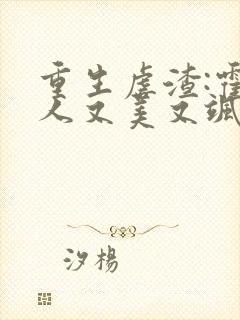 重生虐渣:霍
人又美又飒
汐楊